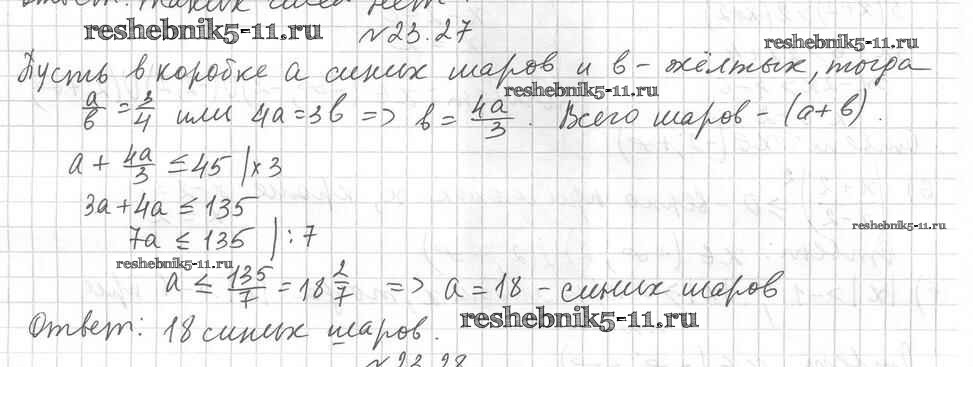 reshebnik5-11.ru
№23.27
reshebnik5-11.ru
Пусть в коробке a синих шаров и в - жёлтых, тогда
reshebnik5-11.ru
a/в = 3/4 или 4a = 3в => в = 4a/3. Всего шаров - (a + в).
a + 4a/3 ≤ 45 | x 3
3a + 4a ≤ 135
7a ≤ 135 | : 7
reshebnik5-11.ru
reshebnik5-11.ru
a ≤ 135/7 = 18 2/7 => a = 18 - синих шаров
reshebnik5-11.ru
Ответ: 18 синих шаров.
№23.28